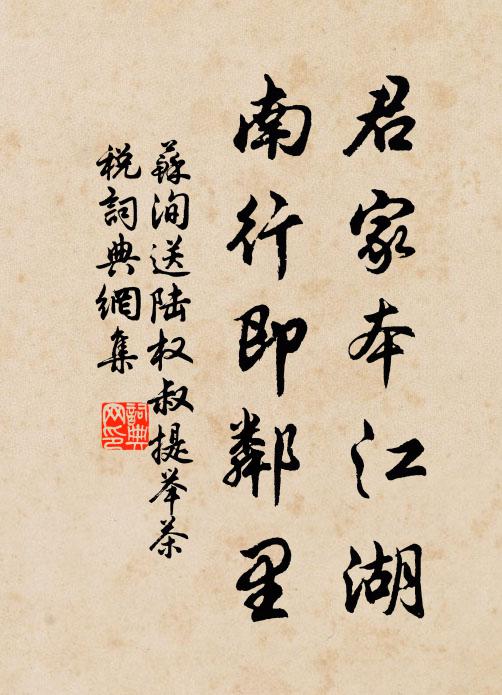 君家本江湖
南行即鄰里
蘇洵送陆权叔提举茶
税詞典網集
詞典
网印